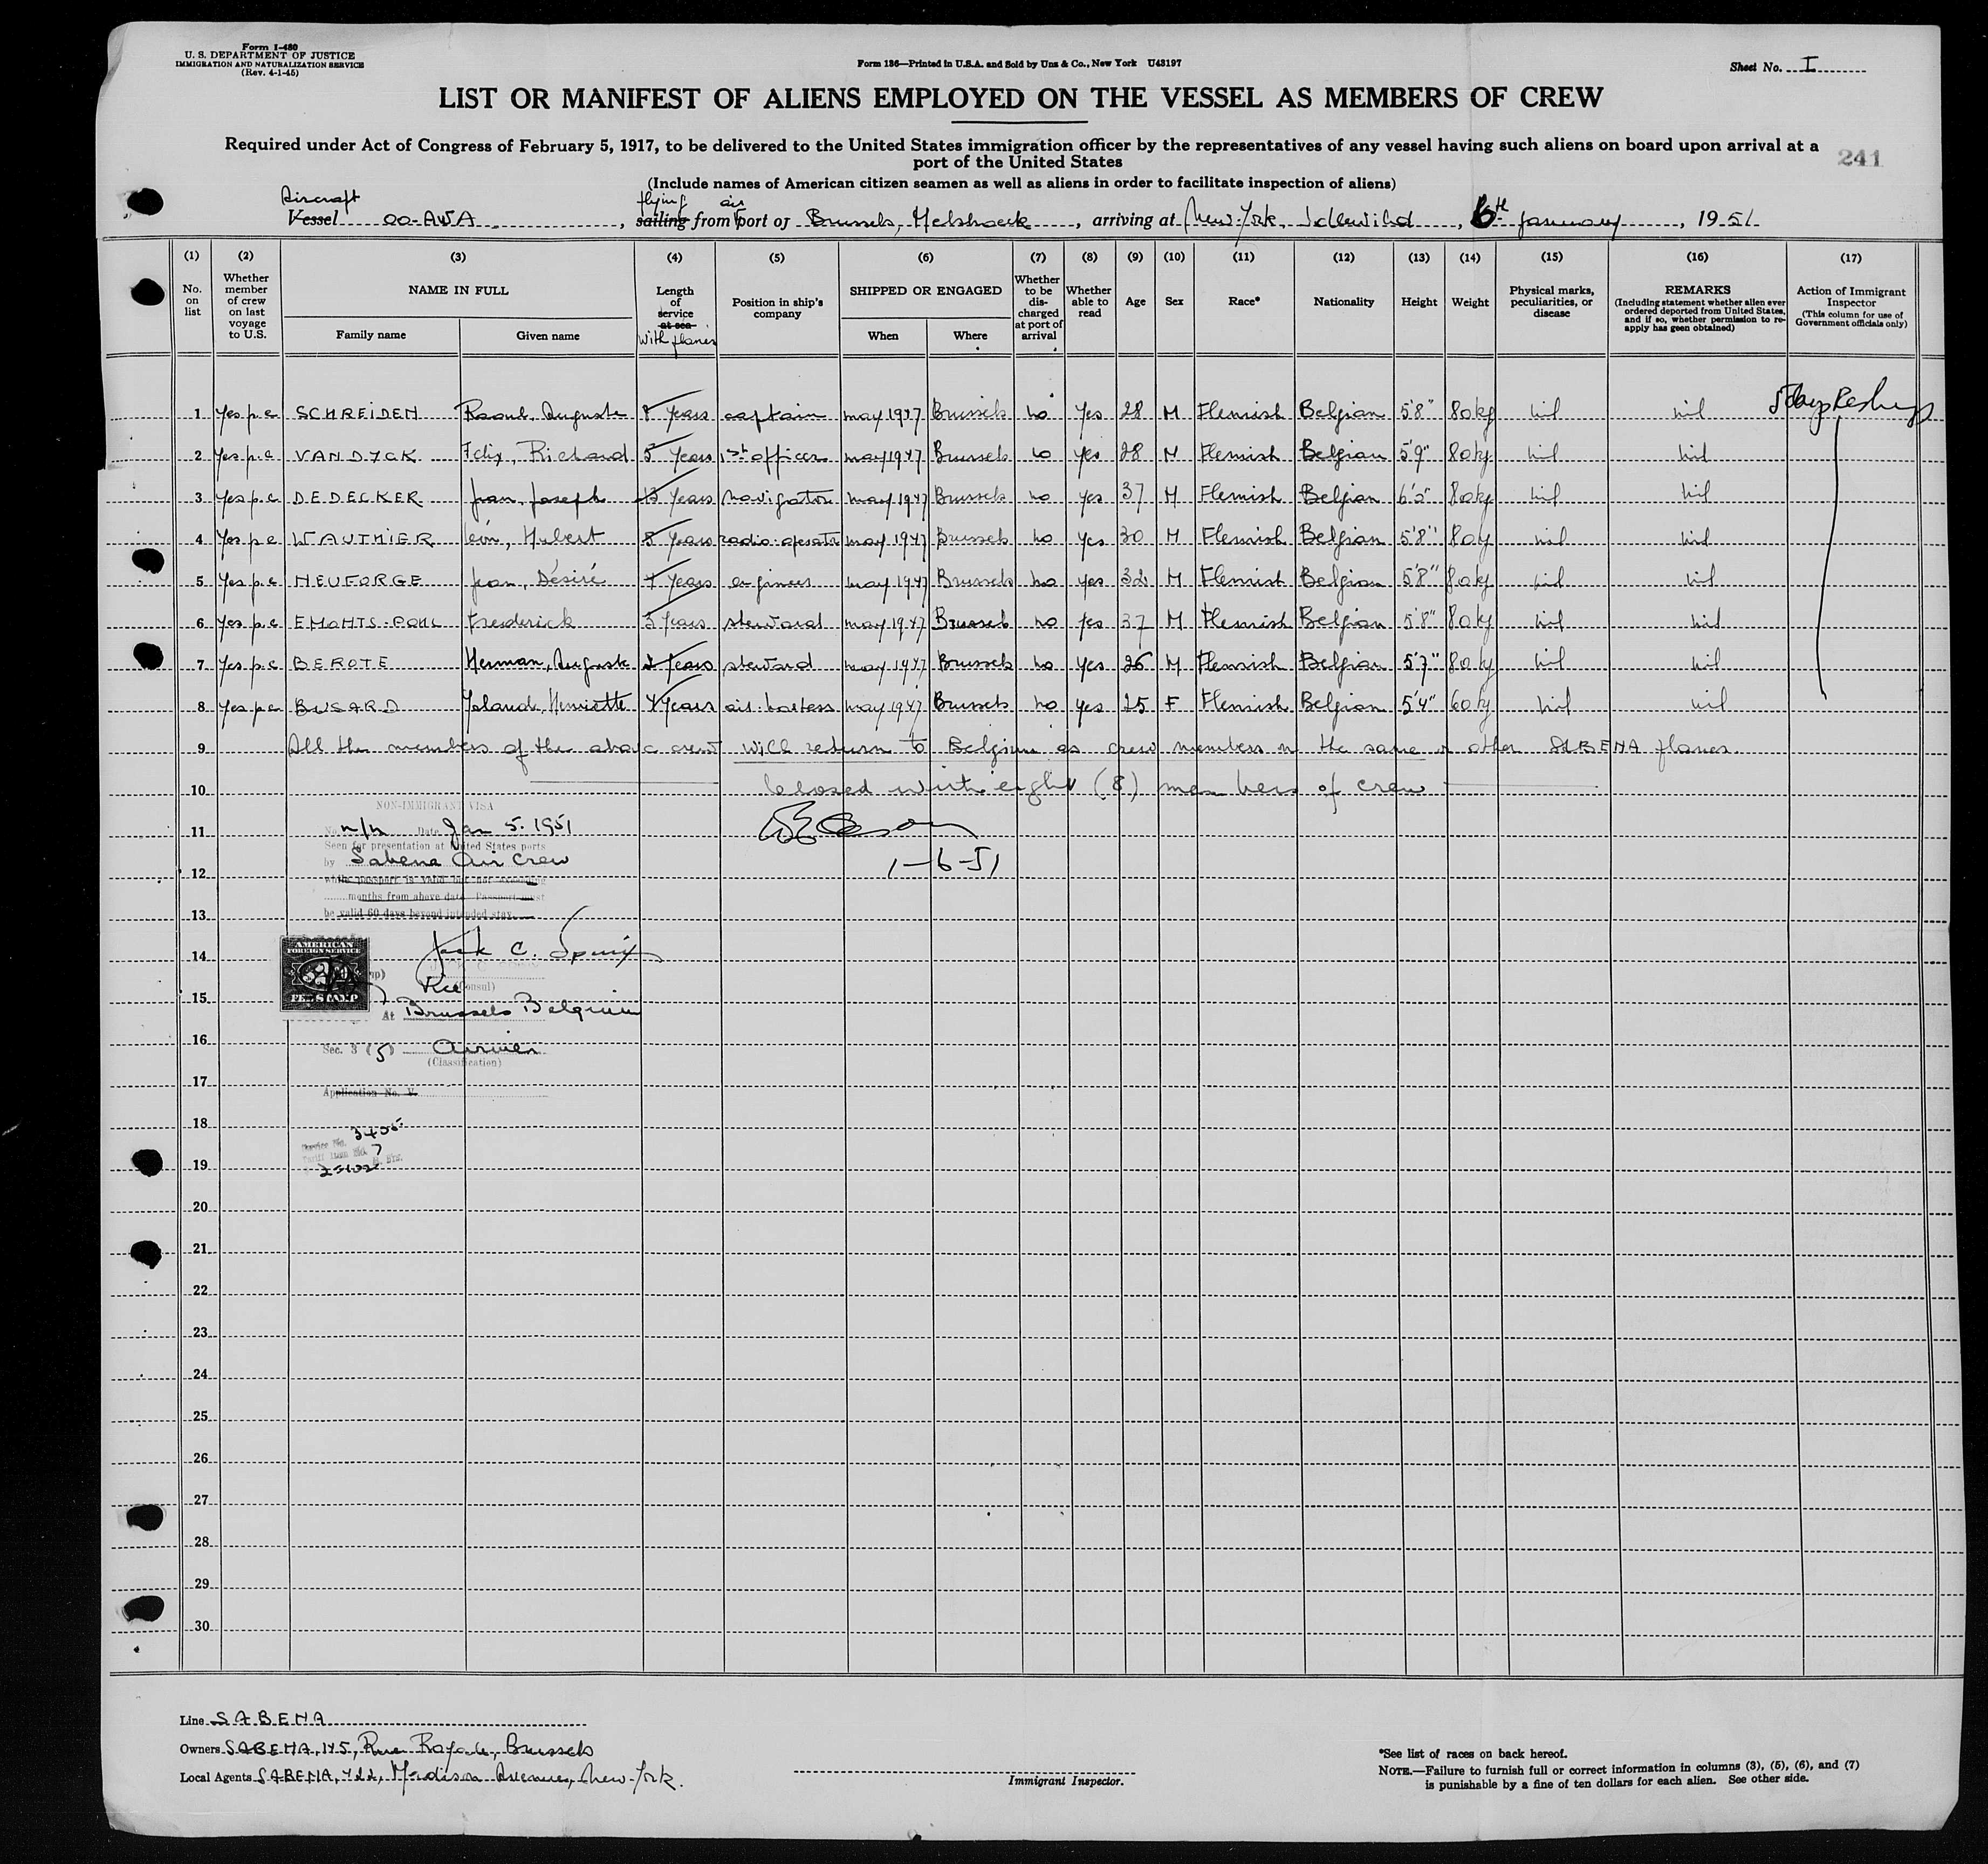 Form I-480
U. S. DEPARTMENT OF JUSTICE
IMMIGRATION AND NATURALIZATION SERVICE
(Rev. 4-1-45)
Form 136—Printed in U.S.A. and Sold by Unz & Co., New York U43197
Sheet No. I
LIST OR MANIFEST OF ALIENS EMPLOYED ON THE VESSEL AS MEMBERS OF CREW
Required under Act of Congress of February 5, 1917, to be delivered to the United States immigration officer by the representatives of any vessel having such aliens on board upon arrival at a
port of the United States
241
(Include names of American citizen seamen as well as aliens in order to facilitate inspection of aliens)
Aircraft flying air
Vessel OO-AWA, sailing from Port of Brussels, Melsbroek, arriving at New-York, Idlewild, 6th January, 1951
(1) (2) (3) (4) (5) (6) (7) (8) (9) (10) (11) (12) (13) (14) (15) (16) (17)
No. on list
Whether member of crew on last voyage to U.S.
NAME IN FULL
Family name
Given name
Length of service at sea
with planes
Position in ship's company
SHIPPED OR ENGAGED
When
Where
Whether to be discharged at port of arrival
Whether able to read
Age
Sex
Race*
Nationality
Height
Weight
Physical marks, peculiarities, or disease
REMARKS
(Including statement whether alien ever ordered deported from United States, and if so, whether permission to reapply has been obtained)
Action of Immigrant Inspector
(This column for use of Government officials only)
1 Yes p.c SCHREIDEN Raoul, Auguste 8 years captain may 1947 Brussels no yes 28 M Flemish Belgian 5'8" 80kg nil nil 5 days
2 Yes p.c VAN DYCK Felix, Richard 5 years 1st officer may 1947 Brussels no yes 28 M Flemish Belgian 5'9" 80kg nil nil
3 Yes p.c DEDECKER Jean, Joseph 13 years navigator may 1947 Brussels no yes 37 M Flemish Belgian 80kg nil nil
4 Yes p.c WAUTHIER Léon, Hubert 8 years radio-operator may 1947 Brussels no yes 30 M Flemish Belgian 5'8" 80kg nil nil
5 Yes p.c NEUFORGE Jean, Désiré years engineer may 1947 Brussels no yes 32 M Flemish Belgian 5'8" 80kg nil nil
6 Yes p.c EMONTS-POHL Frederick 5 years steward may 1947 Brussels no yes 37 M Flemish Belgian 5'8" 80kg nil nil
7 Yes p.c BEROTE Herman, Auguste years steward may 1947 Brussels no yes 26 M Flemish Belgian 5'7" 80kg nil nil
8 Yes p.c BUSARD Yolande, Henriette 4 years air-hostess may 1947 Brussels no yes 25 F Flemish Belgian 5'4" 60kg nil nil
9 All the members of the above crew will return to Belgium as crew members on the same or other SABENA planes.
10 Closed with eight (8) members of crew
NON-IMMIGRANT VISA
11 No. n/n Date Jan 5. 1951
Seen for presentation at United States ports
by Sabena Air Crew
1-6-51
12 while passport is valid but not exceeding
months from above date. Passport must
13 be valid 60 days beyond intended stay.
AMERICAN
FOREIGN SERVICE
FEE STAMP
14 Jack C.
Vice (Consul)
15
At Brussels Belgium
16
Sec. 3 (5) Airmen
(Classification)
17
Application No. V.
18
Service No. 3455
Tariff Item No. 7
19
20
21
22
23
24
25
26
27
28
29
30
Line SABENA
Owners SABENA, 145, Rue Royale, Brussels
Local Agents SABENA, 422, Madison Avenue, New-York.
Immigrant Inspector.
*See list of races on back hereof.
NOTE.—Failure to furnish full or correct information in columns (3), (5), (6), and (7)
is punishable by a fine of ten dollars for each alien. See other side.